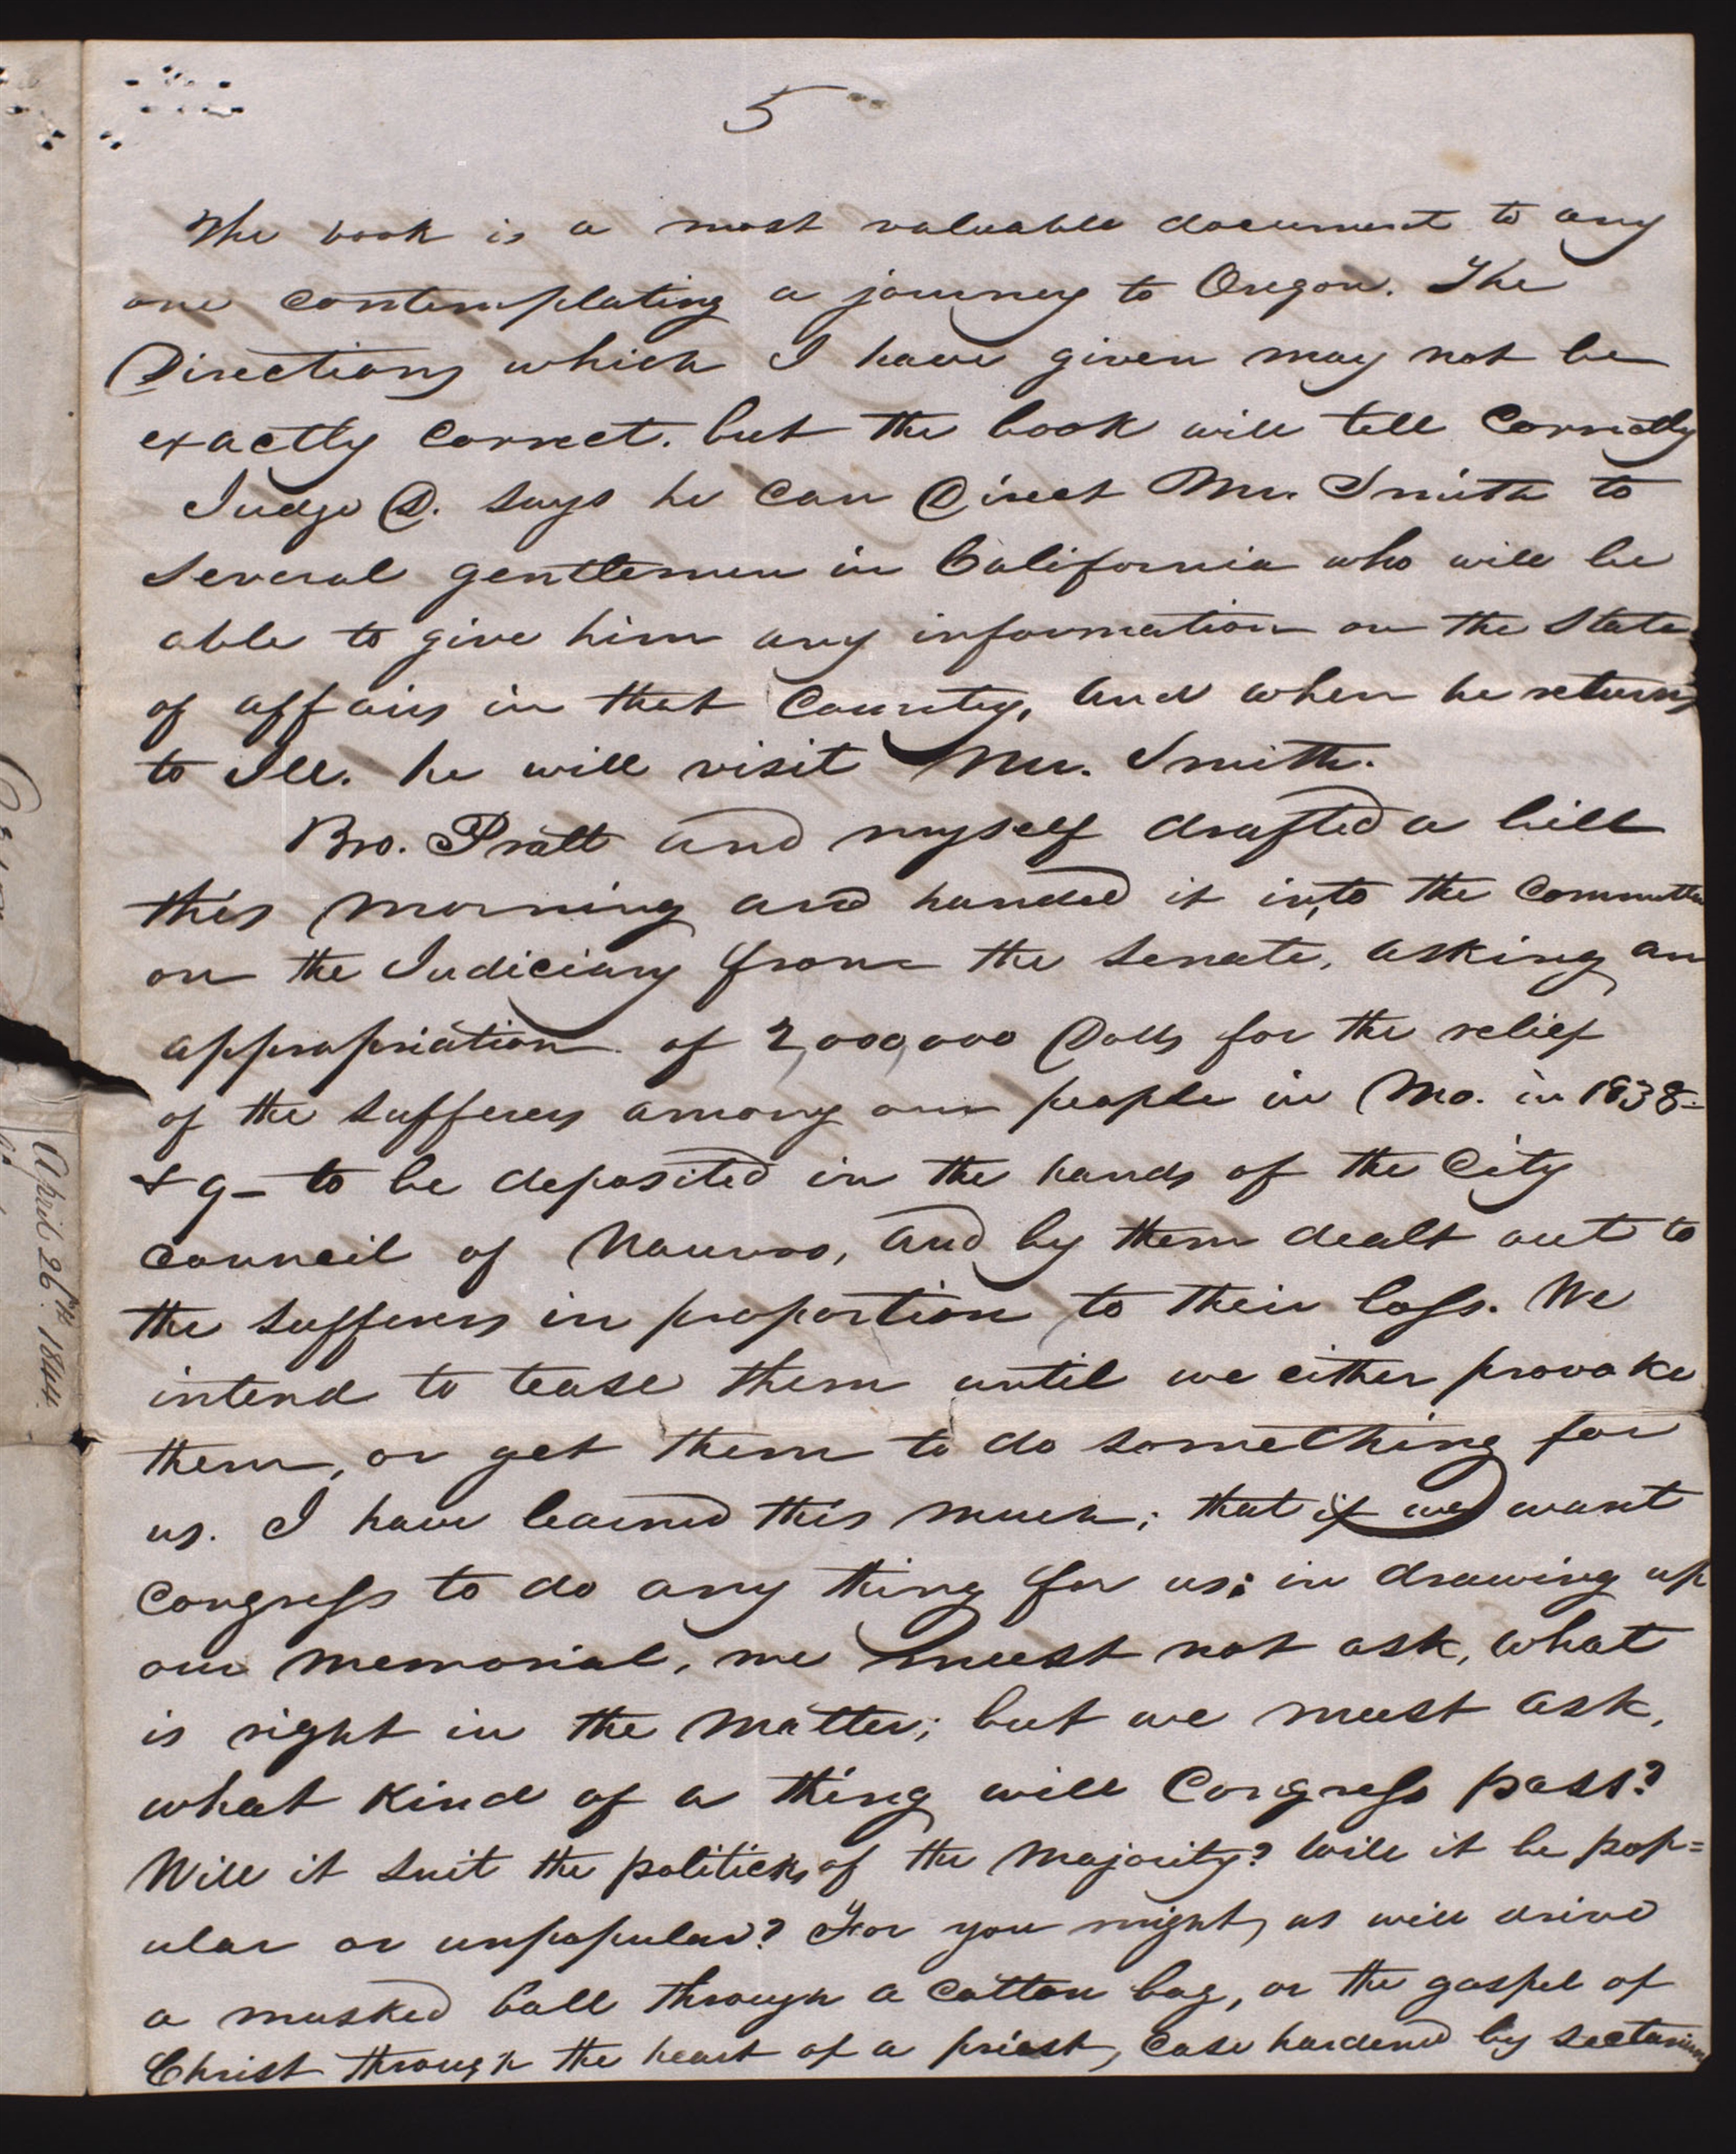 5
The book is a most valuable document to any
one contemplating a journey to Oregon. The
Directions which I have given may not be
exactly correct. but the book will tell correctly
Judge D. says he can Direct Mr. Smith to
several gentlemen in California who will be
able to give him any information on the state
of affairs in that country, and when he returns
to Ill. he will visit Mr. Smith.
Bro. Pratt and myself drafted a bill
this morning and handed it into the committee
on the Judiciary from the Senate, asking an
appropriation of 2,000,000 Dolls for the relief
of the sufferers among our people in Mo. in 1838-
& 9- to be deposited in the hands of the city
council of Nauvoo, and by them dealt out to
the sufferers in proportion to their loss. We
intend to tease them until we either provoke
them, or get them to do something for
us. I have learned this much; that if we want
congress to do any thing for us; in drawing up
our memorial, we must not ask, what
is right in the matter; but we must ask,
what kind of a thing will Congress pass?
Will it suit the politicks of the majority? will it be pop=
ular or unpopular? For you might, as will drive
a musked ball through a cotton bag, or the gospel of
Christ through the heart of a priest, case hardened by sectarianism
April 26th. 1844.